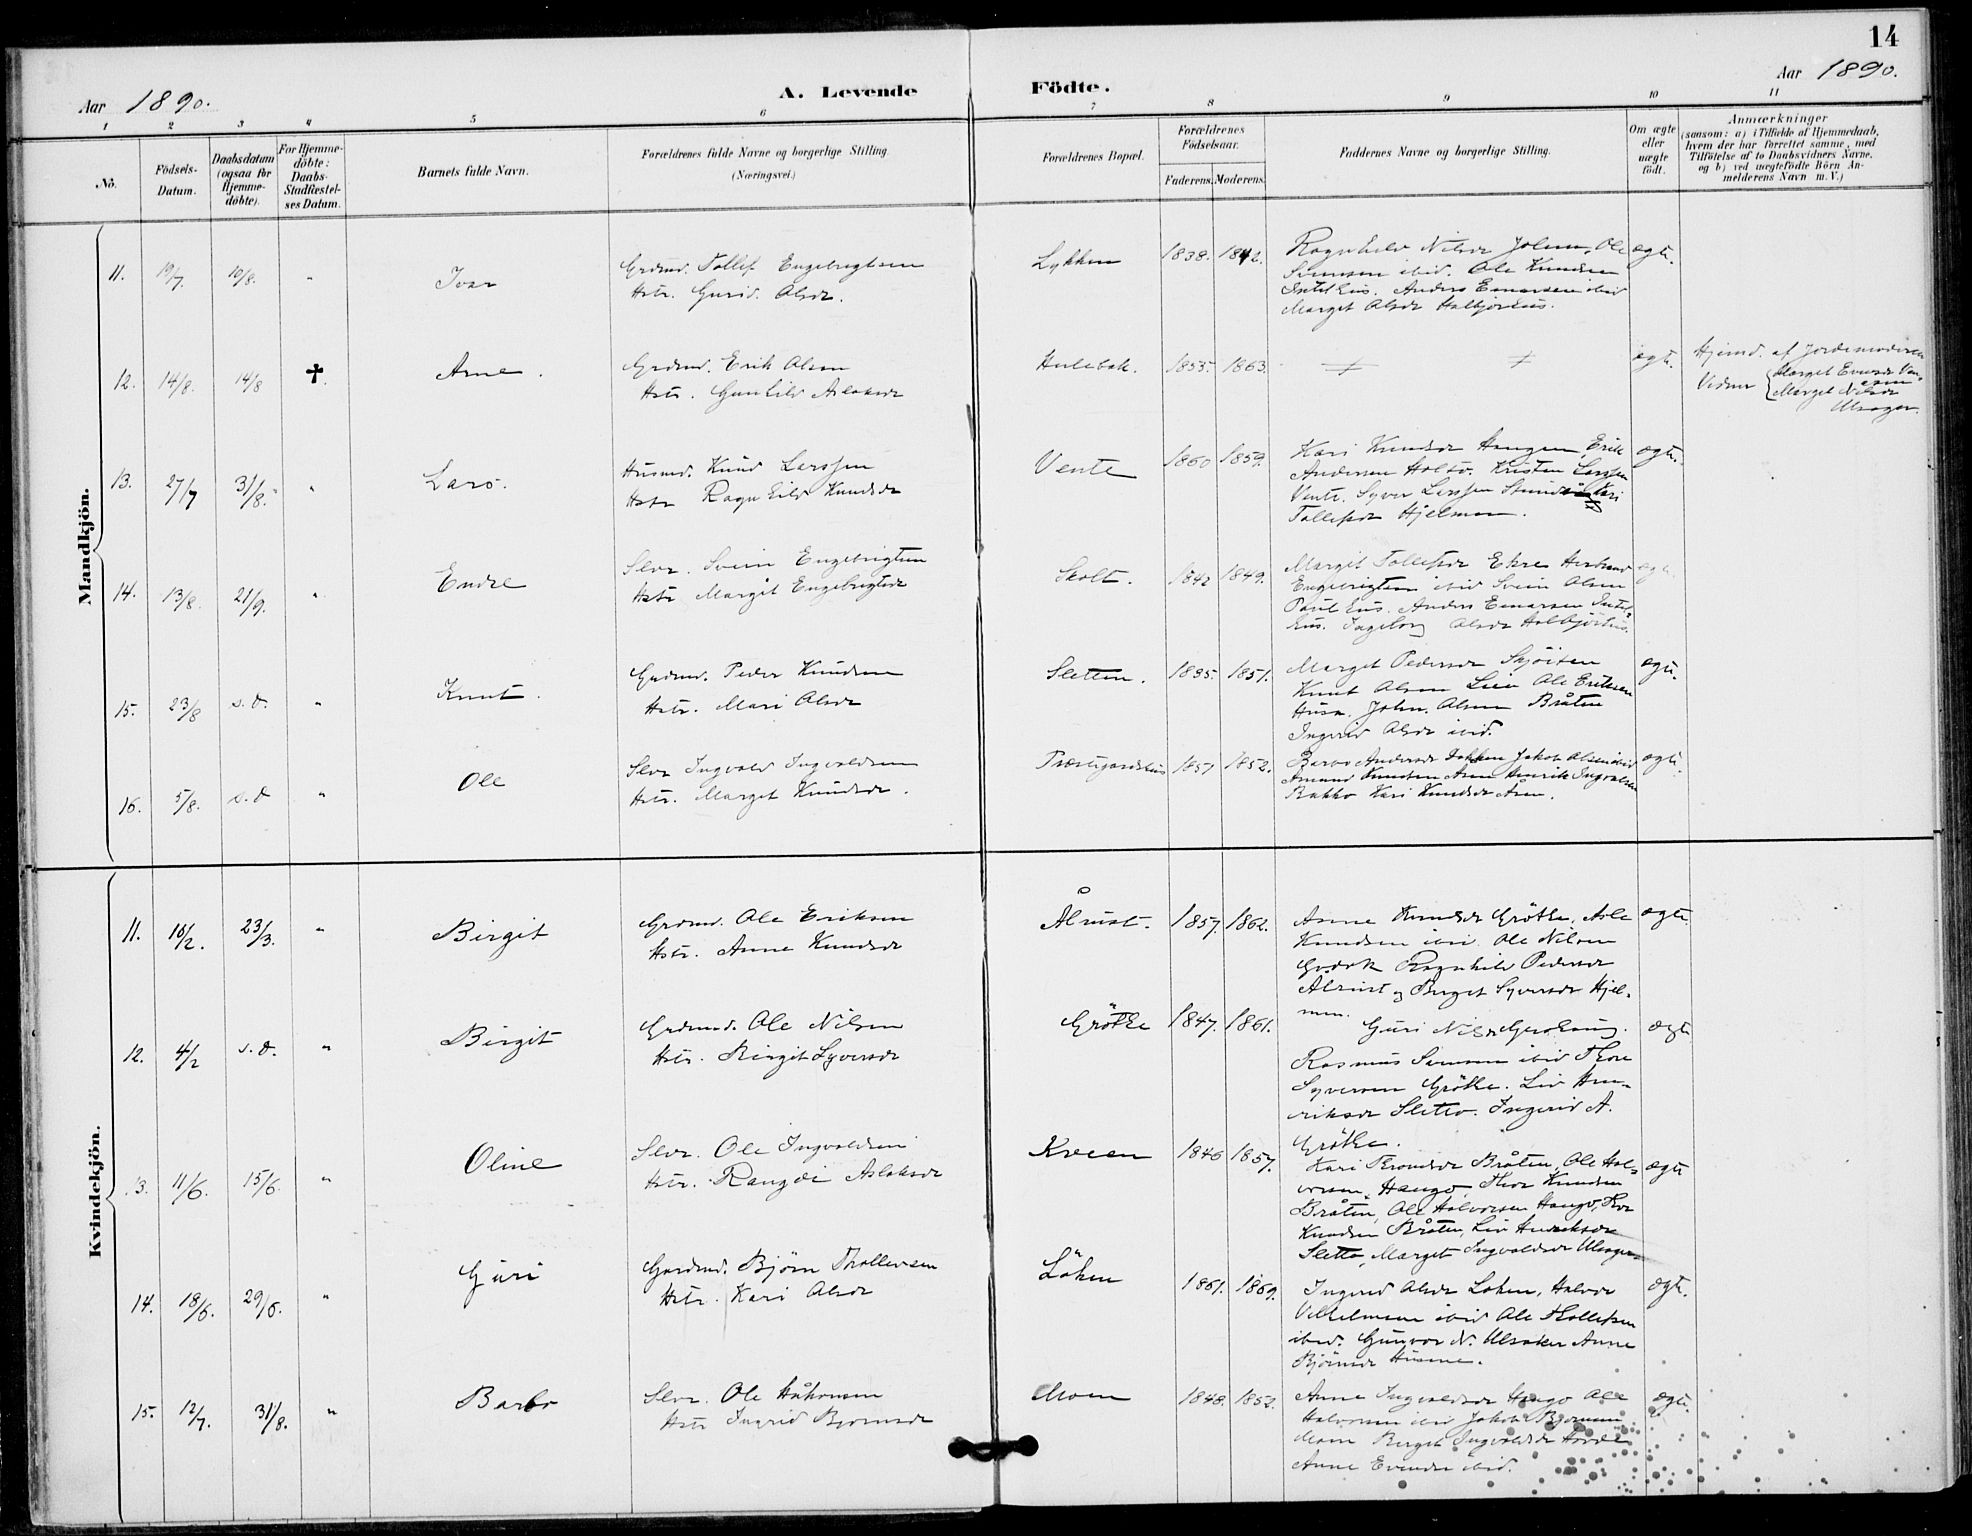 14
Aar 1890.
A. Levende Födte.
Aar 1890.
1 2 3 4 5 6 7 8 9 10 11
No.
Födsels-Datum.
Daabsdatum (ogsaa for Hjemme-döbte).
For Hjemme-döbte: Daabs-Stadfæstel-ses Datum.
Barnets fulde Navn.
Forældrenes fulde Navne og borgerlige Stilling. (Næringsvei.)
Forældrenes Bopæl.
Forældrenes Födselsaar.
Faderens. Moderens.
Faddernes Navne og borgerlige Stilling.
Om ægte eller uægte födt.
Anmærkninger
(saasom: a) i Tilfælde af Hjemmedaab,
hvem der har forrettet samme, med
Tilföielse af to Daabsvidners Navne,
og b) ved uægtefödte Börn An-
melderens Navn m. V.)
Mandkjön.
11. 19/7 10/8. " Ivar
Grdmd. Tollef Engebregtsen
Hstr. Gurid Olsdr.
Lykken 1838. 1842.
Ragnhild Nilsdr. Ole
Svensen ibid. Ole Knudsen
Anders Emarsen ibid
Marget Olsdr
ægte.
12. 14/8. 14/8 †. Arne.
Grdmd. Erik Olsen
Hstr. Gunhild Aslaksdr
Hulebak. 1855. 1863.
ægte.
Hjemd. af Jordemoderen
Vidner Marget
Marget Nilsdr
Ulsager.
13. 27/7 31/8. " Lars.
Husmd. Knud Larssen
Hstr Ragnhild Knudsdr
Vente 1860 1859.
Kari Knudsdr Haugen, Erik
Andersen Holto. Kristen Larssen
Vente. Syver Larssen Kari
Tollefsdr Hjelmen.
ægte.
14. 13/8. 21/9. " Endre
Slvr. Svein Engebrigtsen
Hstr Margit Engebrigtsdr
Skolt. 1842 1849.
Margit Tollefsdr Ekre
Engebrigtsen ibid Svein Olsen
Anders Emarsen
Ingeborg Olsdr
ægte.
15. 23/8 s.d. " Knut.
Grdmd. Peder Knudsen
Hstr. Mari Olsdr
Sletten. 1835. 1851.
Marget Pedersdr
Knut Olsen Lien Ole Eriksen
John Olsen Bråten
Ingerid Olsdr ibid.
ægte.
16. 5/8. s.d " Ole
Slvr Ingvald Ingvaldsen
Hstr. Marget Knudsdr.
Præstgardshus 1857 1852.
Barbro Andersdr Jakob Olsen ibid
Amund Knudsen Henrik Ingvalsen
Bakko Kari Knudsdr
ægte.
Kvindekjön.
11. 16/2. 23/3. " Birgit
Grdmd. Ole Eriksen
Hstr. Anne Knudsdr
Ålrust. 1857. 1862.
Anne Knudsdr Gröthe, Asle
Knudsen ibid. Ole Nilsen
Ragnhild Pedersdr
Ålrust og Birget Syversdr Hjel-
men.
ægte.
12. 4/2 s.d. " Birgit
Grdmd. Ole Nilsen
Hstr. Birgit Syversdr
Gröthe 1847. 1861.
Guri Nilsdr
Rasmus Svensen ibid Thore
Syversen Gröthe. Liv Hen-
riksdr Sletto. Ingerid A.
Gröthe.
ægte
13. 11/6. 15/6. " Oline
Slvr. Ole Ingvaldsen
Hstr. Rangdi Aslaksdr
Kveen 1846 1857.
Kari Trondsdr Bråten, Ole Hal-
vorsen, Haugo, Thor Knudsen
Bråten, Ole Halvorsen Haugo, Thor
Knudsen Bråten, Liv Henriksdr
Sletto, Marget Ingvaldsdr Ulsager
ægte
14. 18/6. 29/6. " Guri
Gardmd. Björn Thollevsen
Hstr. Kari Olsdr
Löken 1861. 1869.
Ingerid Olsdr Loken, Halvor
Vilhelmsen ibid Ole Thollefsen
ibid. Gunvor N. Ulsaker Anne
Björnsdr
ægte.
15. 12/7. 31/8. " Barbr
Slvr. Ole Håkonsen
Hstr Ingrid Bjornsdr
Moen 1848. 1852.
Anne Ingvaldsdr Haugo Ole
Halvorsen ibid Jakob Bjornsen
Moen Birget Ingvaldsdr
Anne ibid.
ægte.